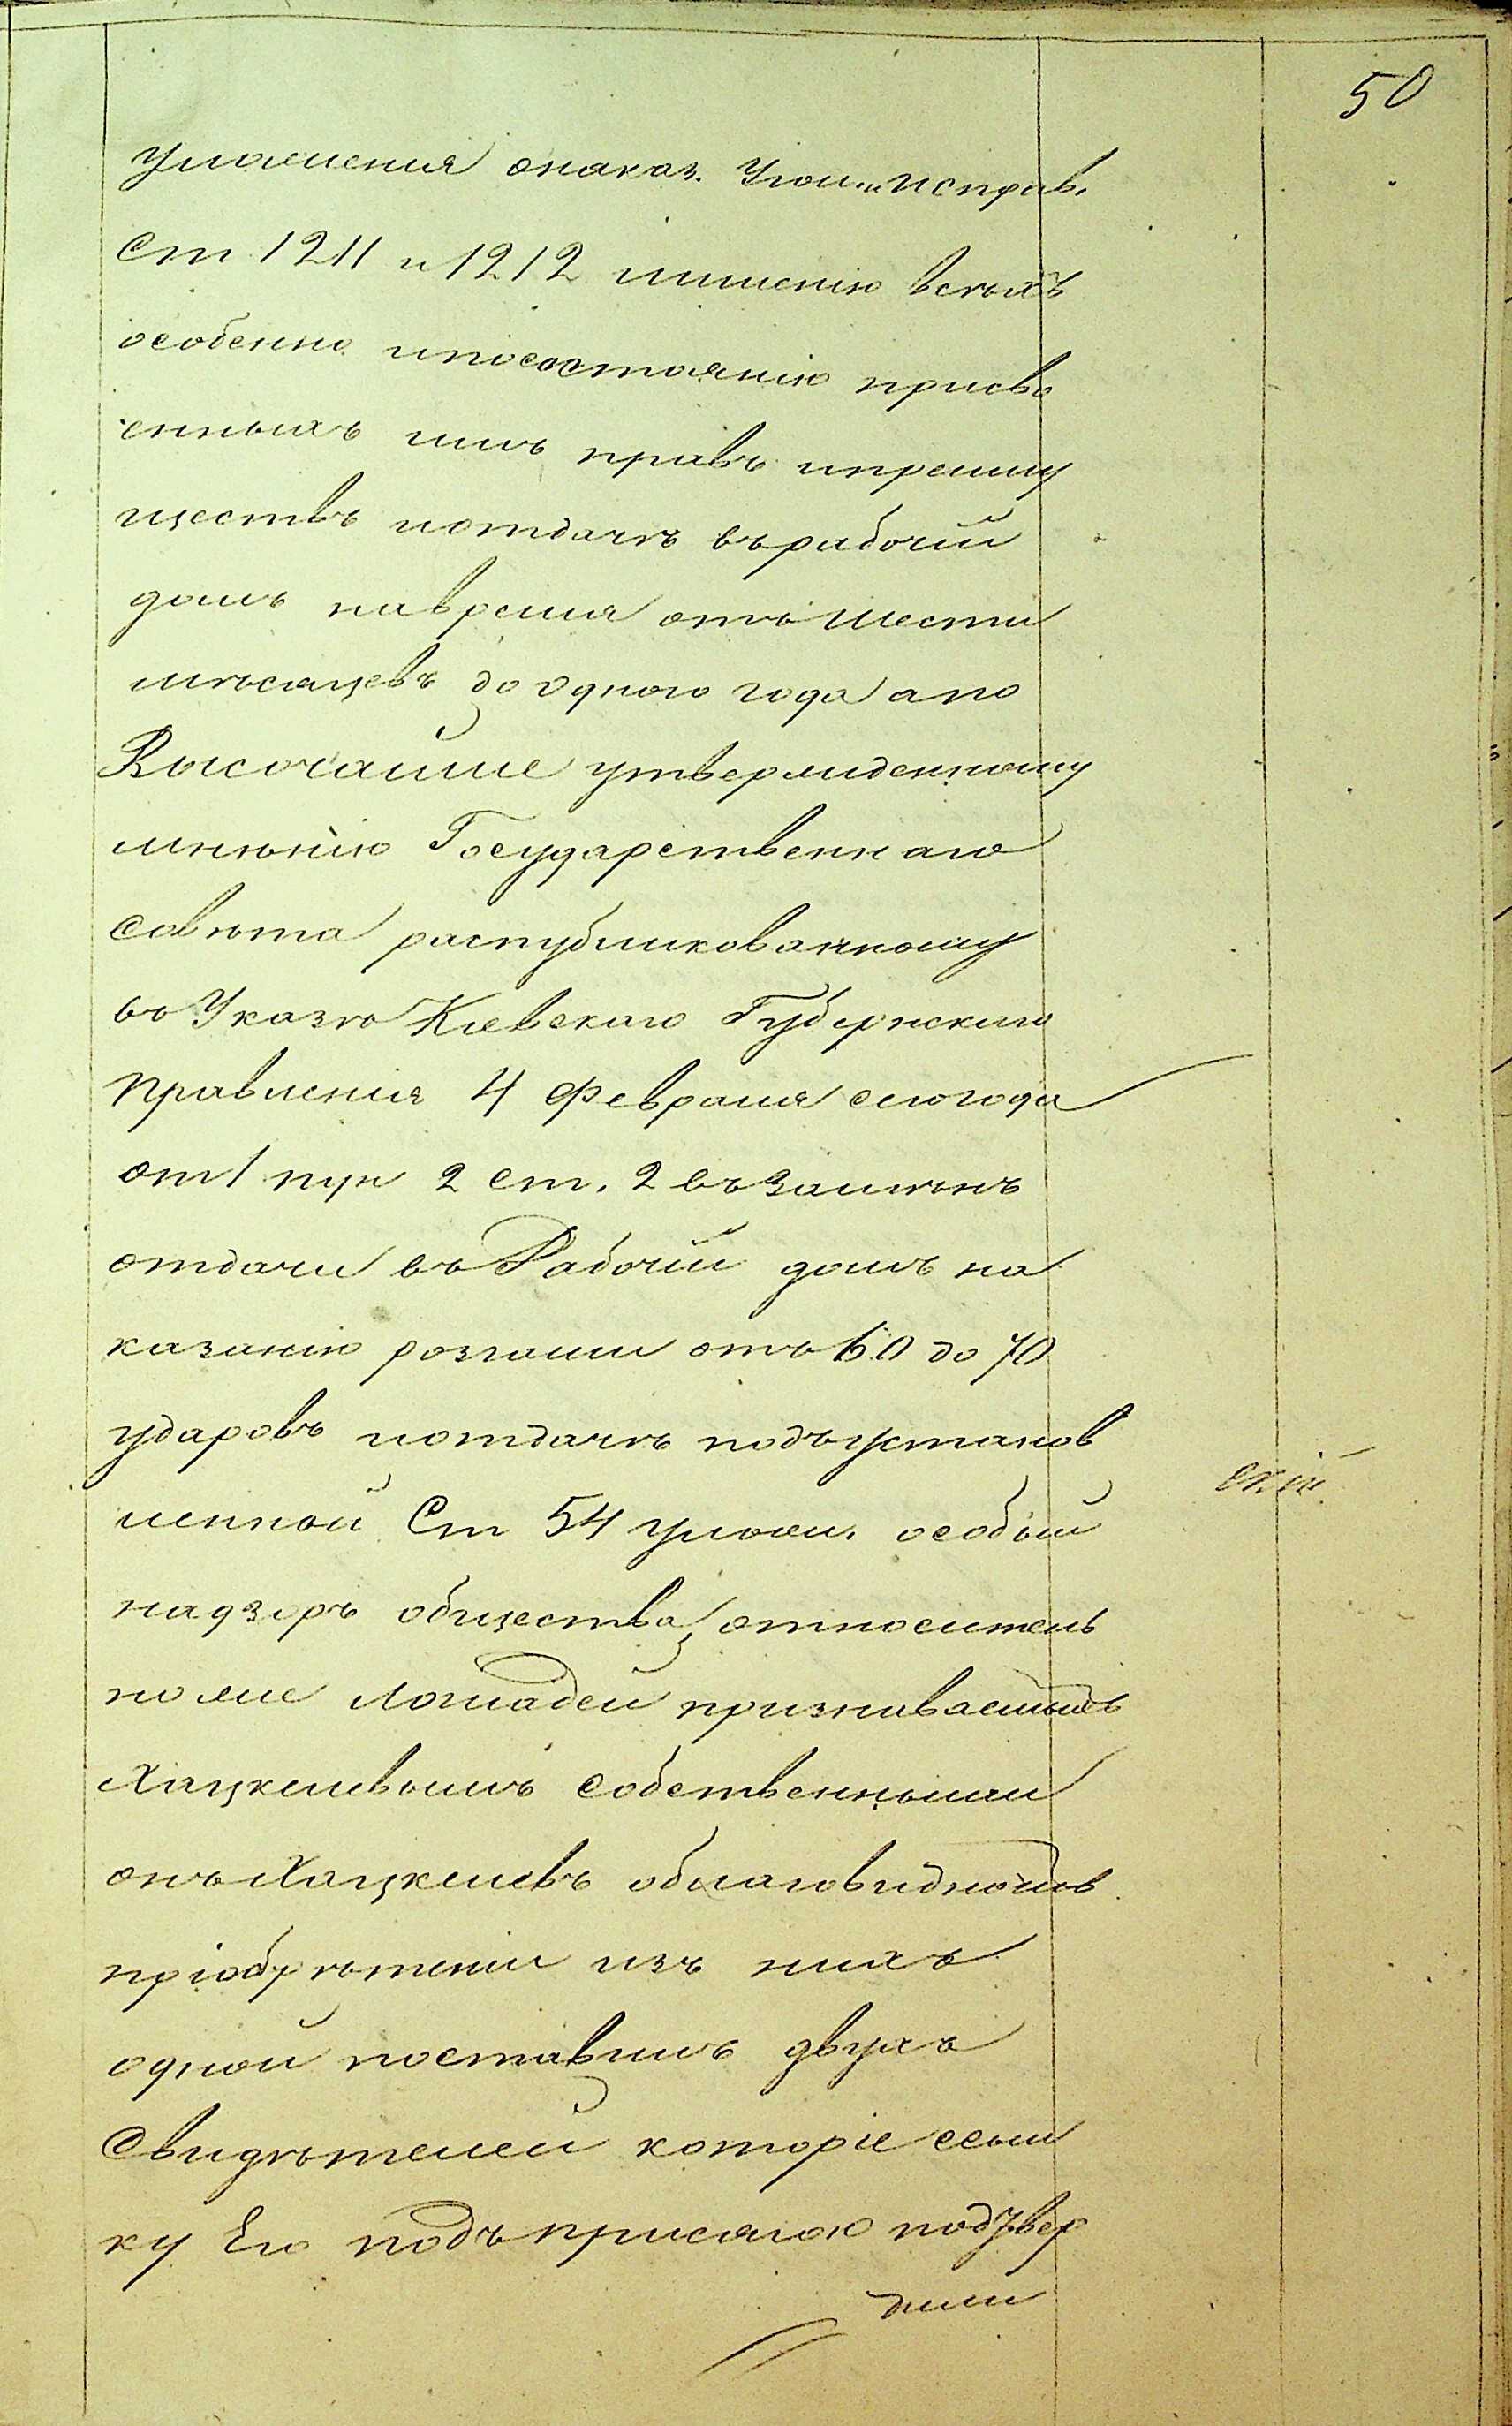 50
уложенія онаказ. Угол. и исправ.
Ст 1211 и 1212 лишенію всѣхъ
особенно ипосостоянію присво
енныхъ имъ правъ ипреиму
ществъ иотдачѣ върабочій
домъ навремя отъ шести
мѣсяцевъ до одного года апо
Высочайше утвержденному
мнѣнію Государственнаго
совѣта распубликованному
въ Указѣ Кіевскаго Губернскаго
Правленія 4 февраля сегогода
от 1 пун 2 ст. 2 въ замѣнъ
отдачи въ Рабочій домъ на
казанію розгами отъ 60 до 70
ударовъ иотдачѣ подъустанов
ленной Ст 54 улож. особый
надзоръ общества, относитель
но же Лошадей признаваемыхъ
Хацкелевымъ собственными
онъ Хацкелевъ облаговидномъ
пріобрѣтеніи изъ нихъ
одной поставилъ двухъ
Свидѣтелей которіе ссыл
ку Его подъ присягою подтвер
дили